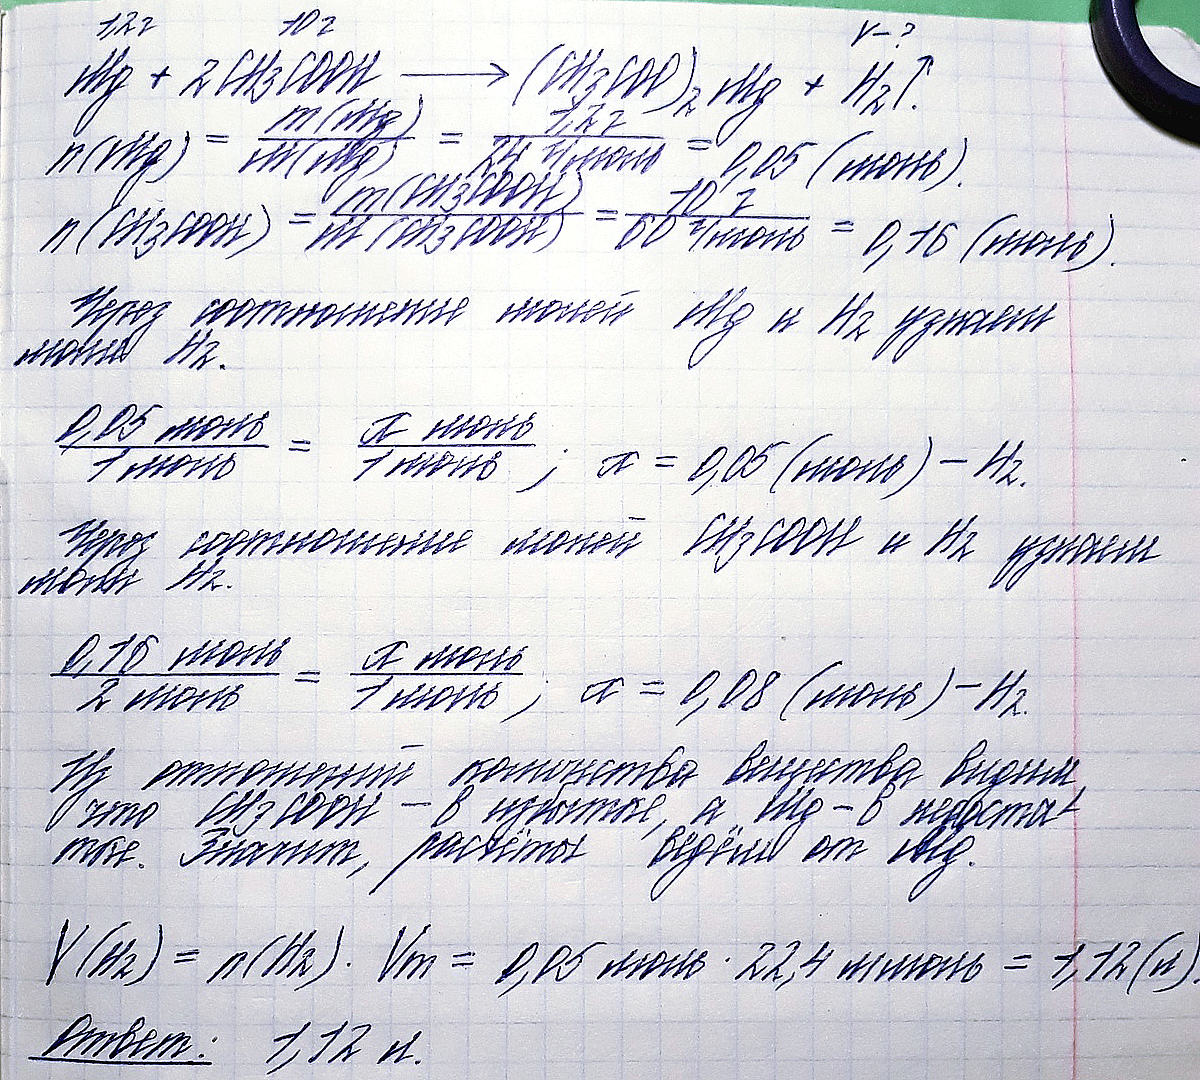 1,2г 10г V-?
Mg + 2CH₃COOH ⟶ (CH₃COO)₂Mg + H₂↑.
n(Mg) = m(Mg)/m(Mg) = 1,2г/24 г/моль = 0,05 (моль).
n(CH₃COOH) = m(CH₃COOH)/m(CH₃COOH) = 10 г/60 г/моль = 0,16 (моль).
Через соотношение молей Mg и H₂ узнаем
моли H₂.
0,05 моль/1 моль = x моль/1 моль; x = 0,05 (моль) – H₂.
Через соотношение молей CH₃COOH и H₂ узнаем
моли H₂.
0,16 моль/2 моль = x моль/1 моль; x = 0,08 (моль) – H₂.
Из отношений количества вещества видим
что CH₃COOH – в избытке, а Mg – в недостат
тке. Значит, расчёты ведём от Mg.
V(H₂) = n(H₂) · Vm = 0,05 моль · 22,4 л/моль = 1,12 (л).
Ответ: 1,12 л.